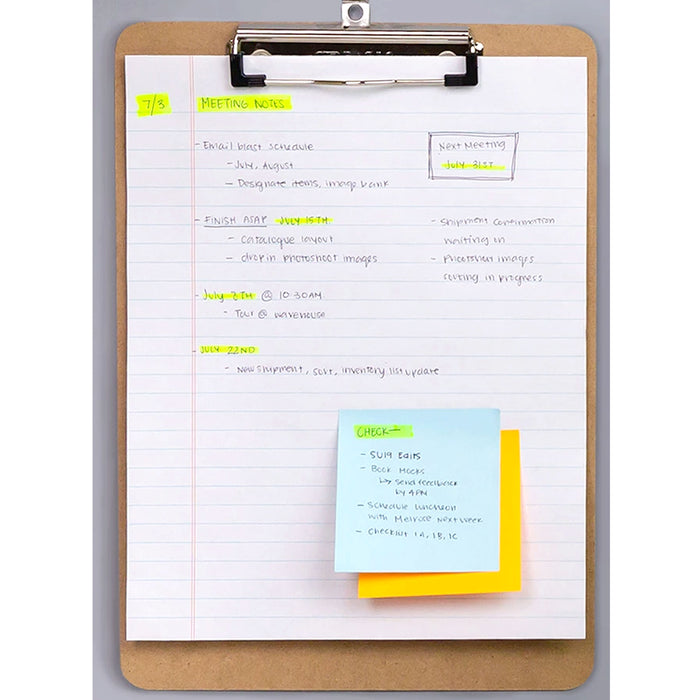 7/3 MEETING NOTES
- Email blast schedule
- July, August
- Designate items, image bank
Next Meeting
July 31ST
- FINISH ASAP JULY 15TH
- Catalogue layout
- drop in photoshoot images
- Shipment confirmation
waiting on
- Photoshoot images
sorting in progress
- July 7TH @ 10:30AM
- Tour @ warehouse
- JULY 22ND
- New shipment, sort, inventory list update
CHECK—
- SU19 Edits
- Book Mocks
↳ send feedback
by 4PM
- Schedule luncheon
with Melrose Next week
- Checklist 1A, 1B, 1C